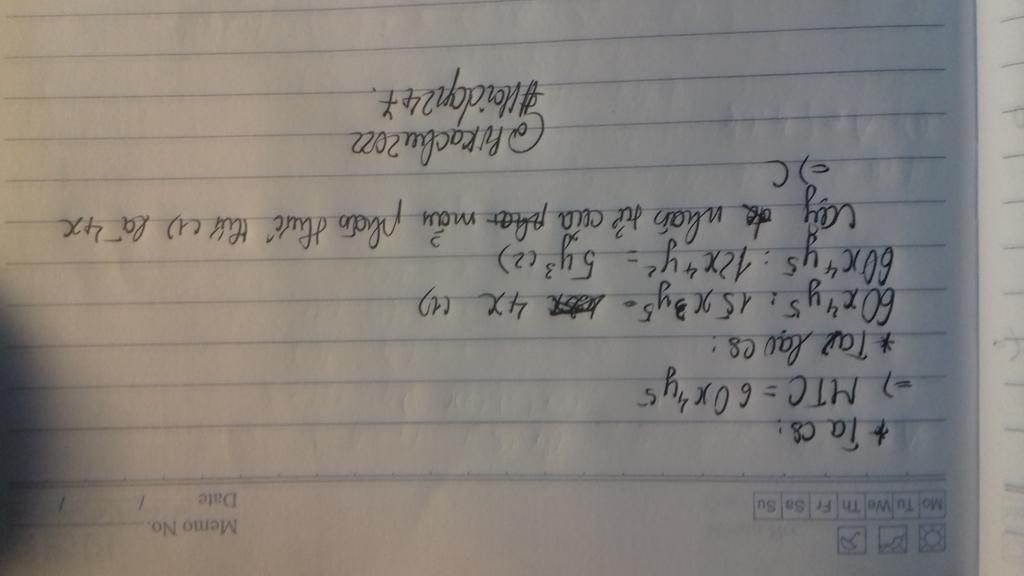 Mo Tu We Th Fr Sa Su
Memo No.
Date / /
* Ta có:
=) MTC = 60x⁴y⁵
* Ta lại có:
60x⁴y⁵ : 15x³y⁵ = 4x (1)
60x⁴y⁵ : 12x⁴y² = 5y³ (2)
Vậy nhân tử của mẫu phân thức thứ (1) là 4x
=) C
@Pikachu2022
#Hoidqn247.